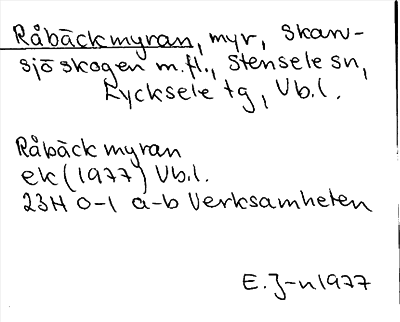 Råbäckmyran, myr, Skan-
sjöskogen m.fl., Stensele sn,
Lycksele tg, Vb.l.
Råbäckmyran
ek (1977) Vb.l.
23H 0-1 a-b Verksamheten
E. J-n 1977